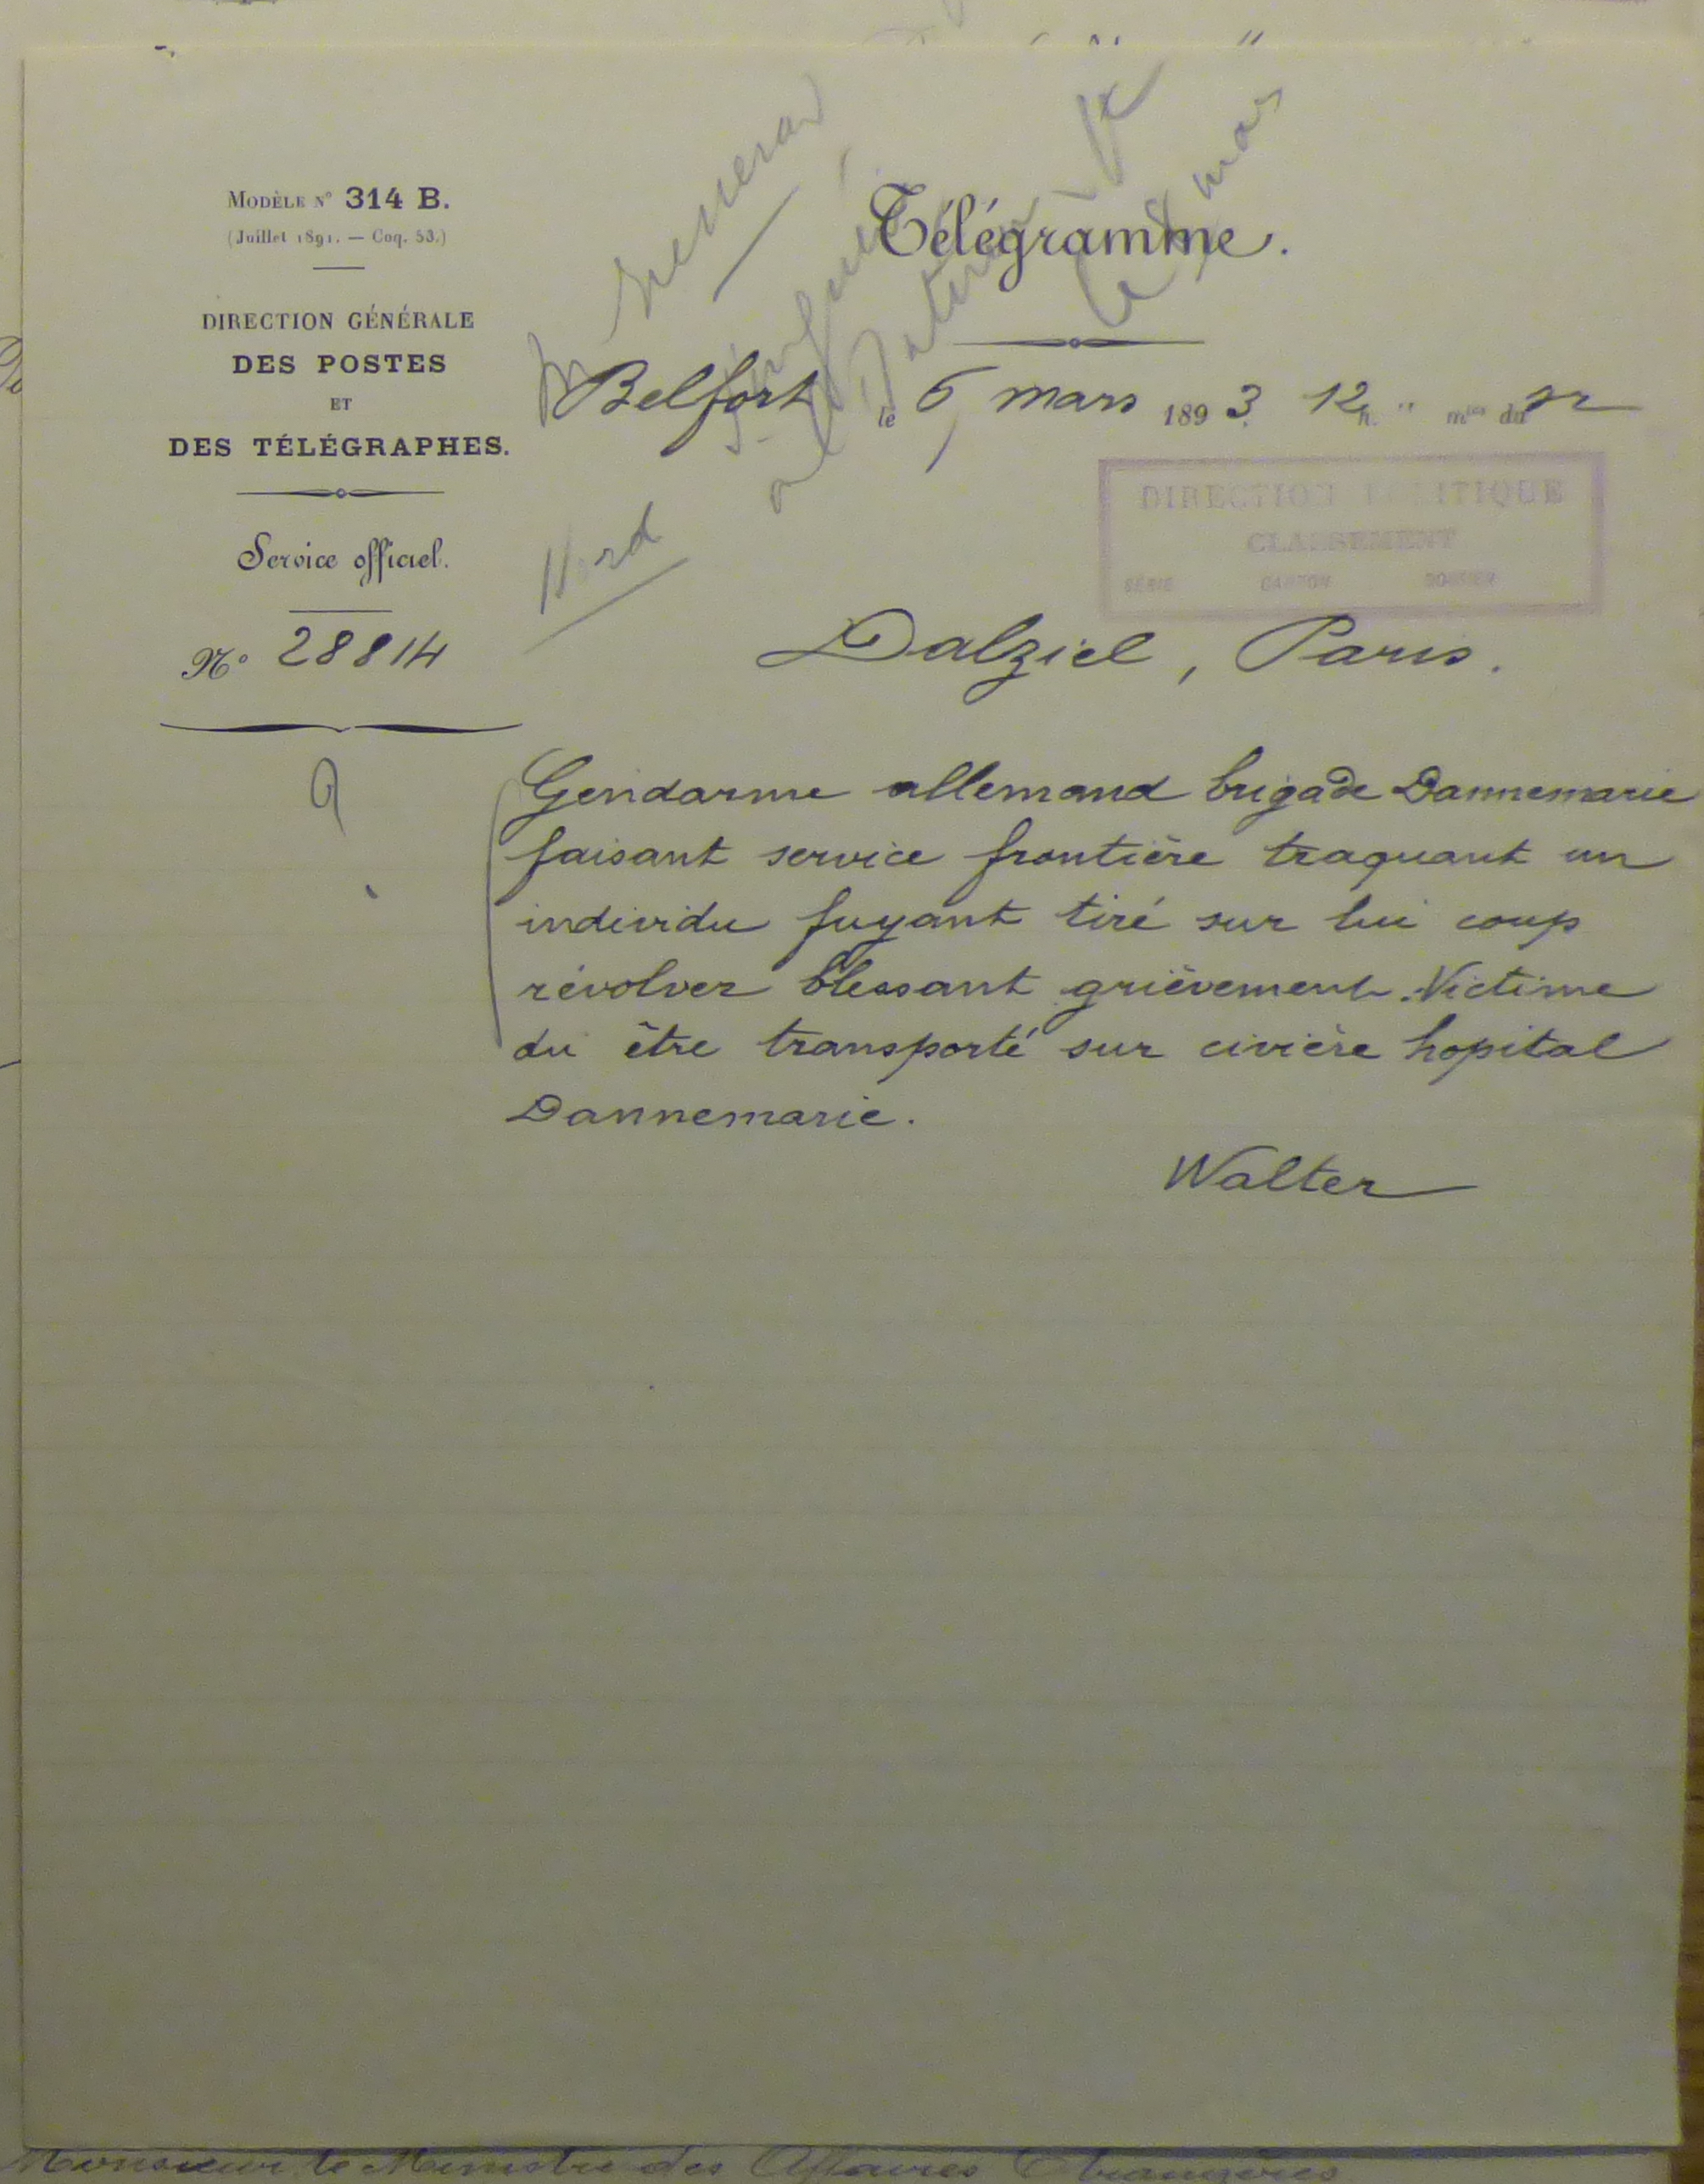 Modèle N° 314 B.
(Juillet 1891. — Coq. 53.)
DIRECTION GÉNÉRALE
DES POSTES
ET
DES TÉLÉGRAPHES.
Service officiel.
N° 28814
Télégramme.
Belfort le 6 mars 1893. 12 h. " mtes du
DIRECTION POLITIQUE
CLASSEMENT
SÉRIE CARTON DOSSIER
Nord
Dalziel, Paris.
Gendarme allemand brigade Dannemarie
faisant service frontière traquant un
individu fuyant tiré sur lui coup
révolver blessant grièvement. Victime
du être transporté sur civière hopital
Dannemarie.
Walter
Monsieur le Ministre des Affaires Etrangères